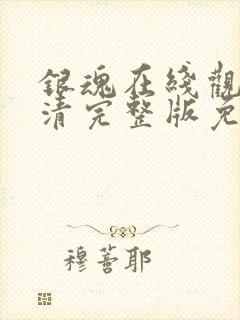 銀魂在线觀
清完整版免
穆薯耶